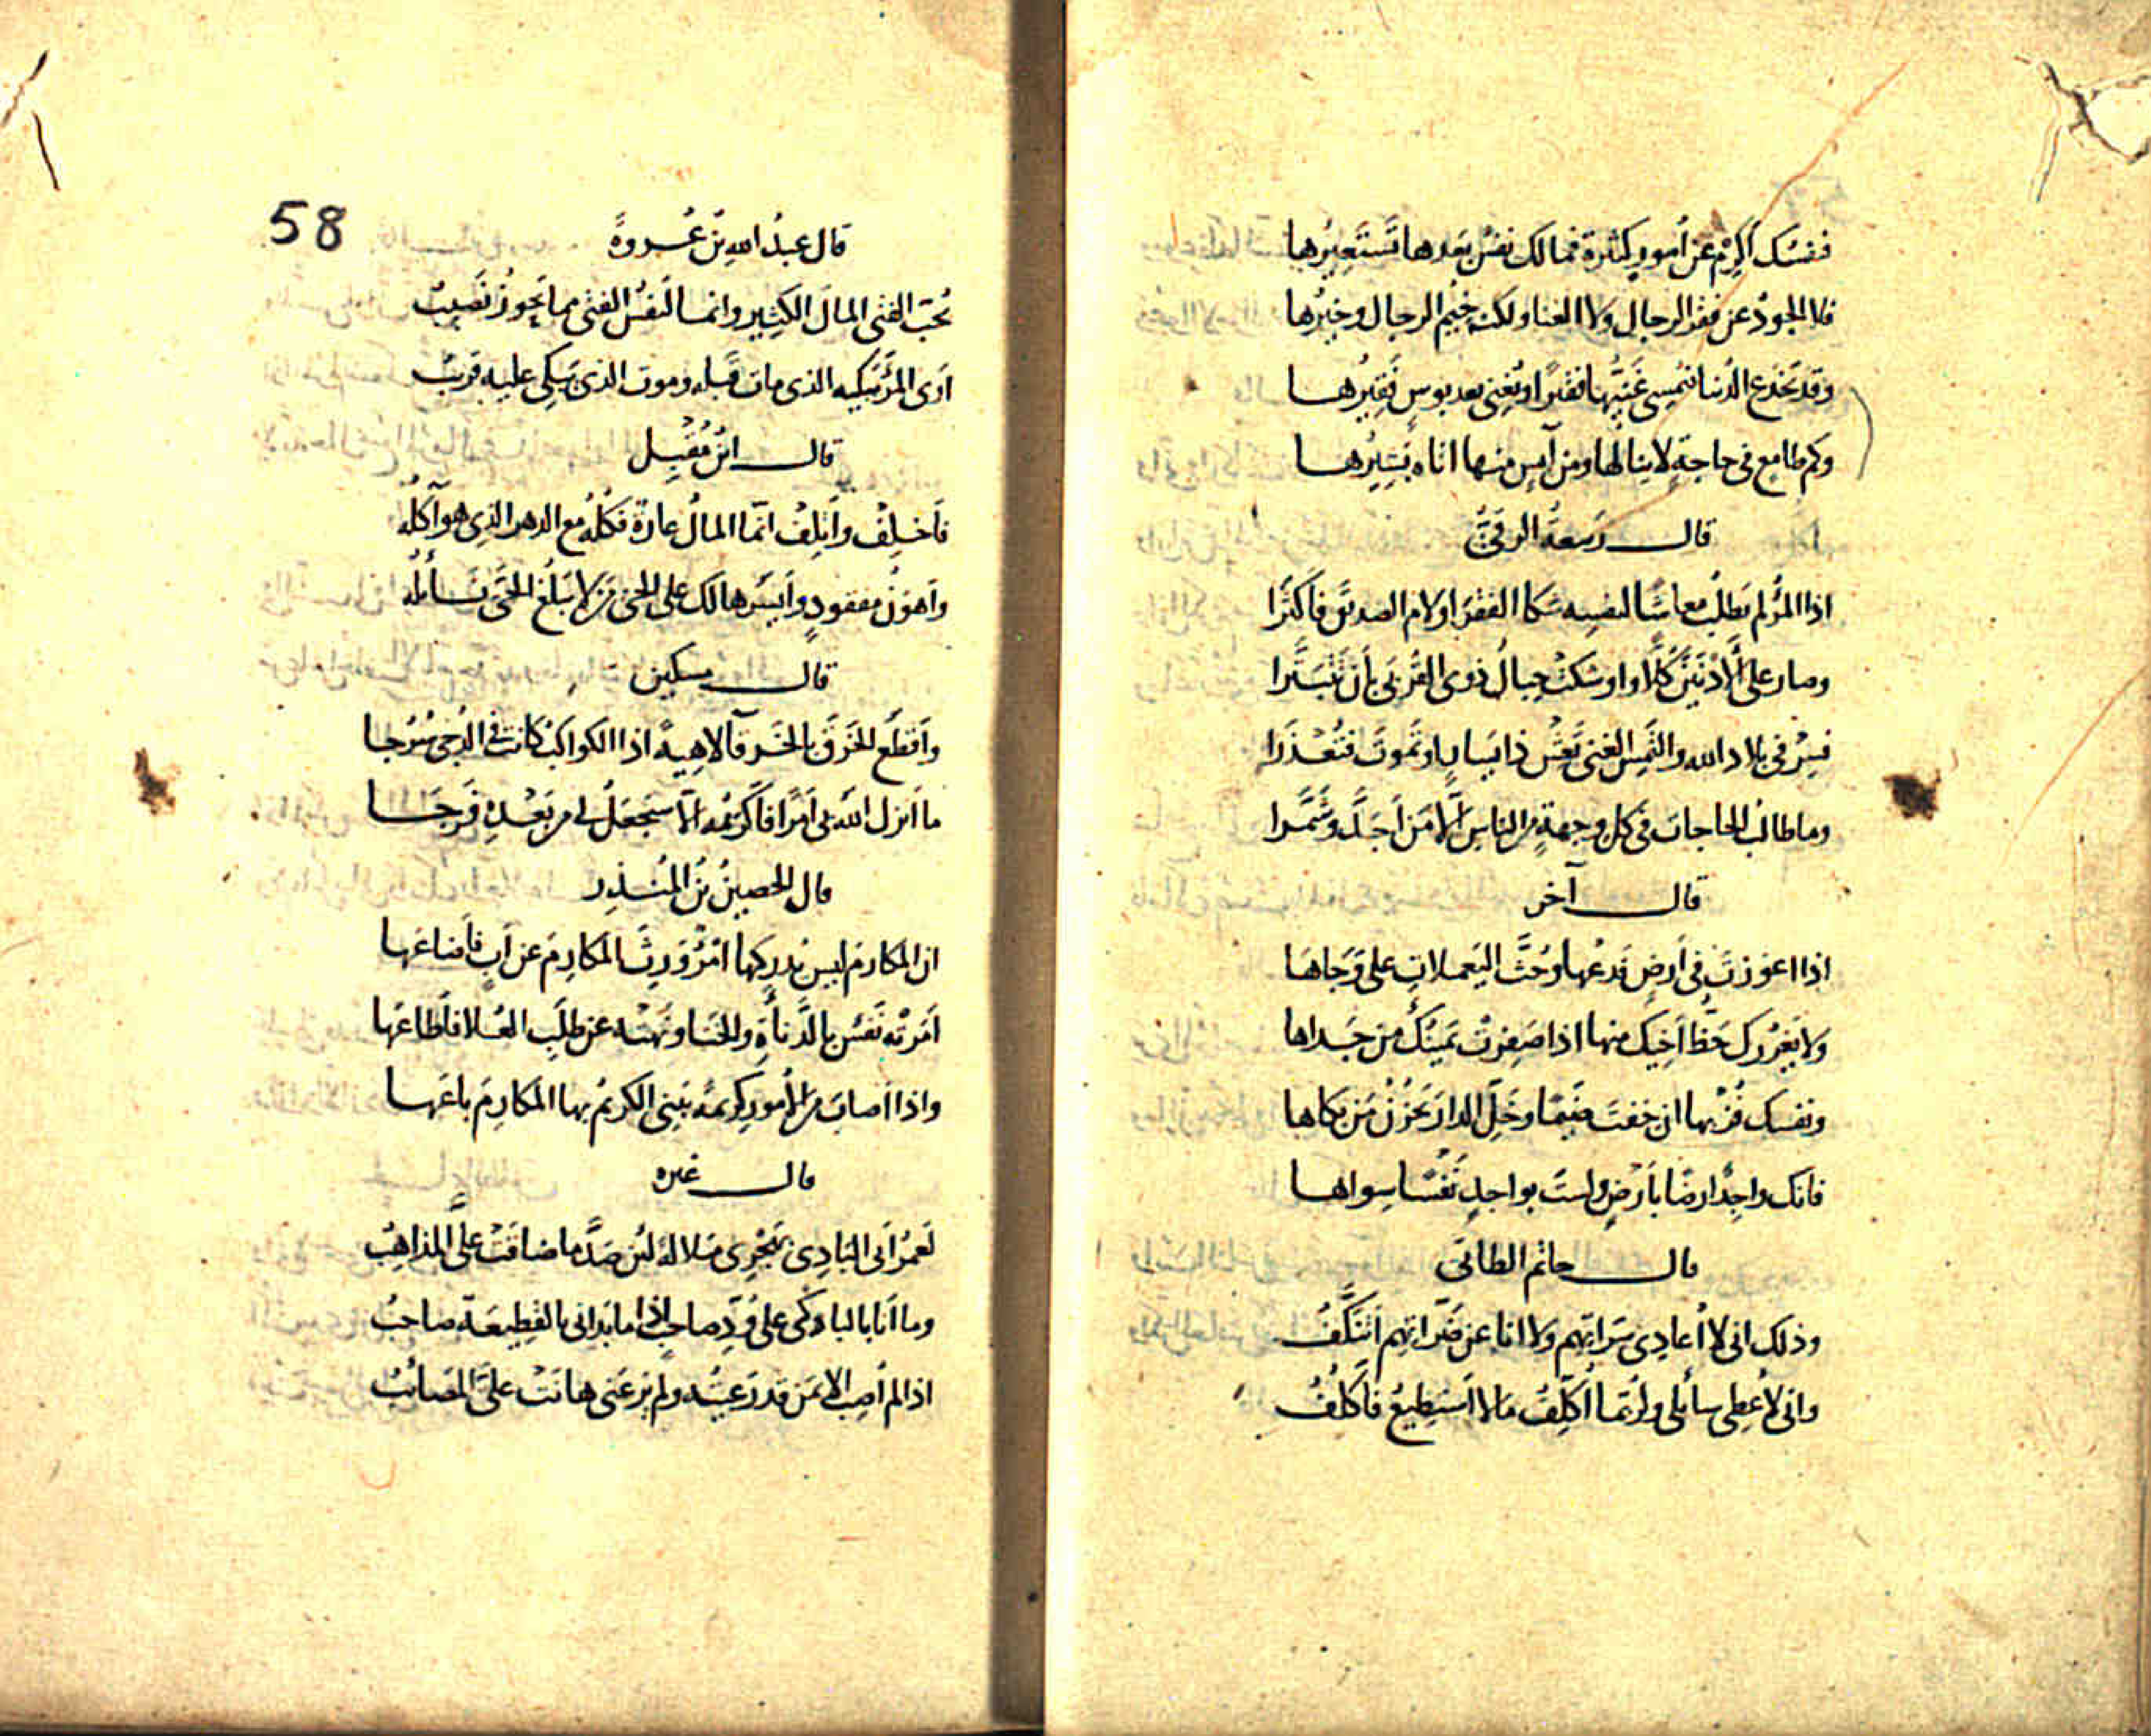 فنفسك اكرم عن أمور كثيرة فمالك نفس بعدها تستعيرها
فلا الجود عن فقر الرجال ولا الغنا ولكنه خيم الرجال وخيرها
وقد تخدع الدنيا فيمسي غنيها فقيرا ويغنى بعد بوس فقيرها
وكم طامع في حاجة لا ينالها ومن آيس منها اتاه بشيرها
قال ربيعة الرقي
اذا المرؤ لم يطلب معاشا لنفسه شكا الفقر او لام الصديق فاكثرا
وصار على الأدنين كلا واوشكت حبال ذوى القربى بأن تتبترا
فسر في بلاد الله والتمس الغنى تعش ذا يسار او تموت فتعذرا
وما طالب الحاجات في كل وجهة من الناس الا من أجد وشمرا
قال آخر
اذا اعوزت في أرض فدعها وحث اليعملات على وجاها
ولا يغررك حظ أخيك منها اذا صفرت يمينك من جداها
ونفسك فز بها ان خفت ضيما وخل الدار تحزن من بكاها
فانك واجد ارضا بأرض ولست بواجد نفسا سواها
قال حاتم الطائي
وذلك انى لا أعادى سراتهم ولا انا عن ضراتهم اتنكف
وانى لأعطى سائلى ولربما أكلف مالا أستطيع فأكلف
58
قال عبد الله بن عروة
تحب الفتى المال الكثير وانما لنفس الفتى مما يحوز نصيب
أرى المرؤ يبكيه الذى مات قبله وموت الذى يبكى عليه قريب
قال ابن مقبل
فأخلف وأتلف انما المال عارة فكله مع الدهر الذى هو آكله
وأهون مفقود وأيسر هالك على الحى من لا يبلغ الحى نائله
قال مسكين
وأقطع الخرق بالخرقآ لاهية اذا الكواكب كانت في الدجى سرجا
ما أنزل الله بى أمرا فأكرهه الا سيجعل لى من بعده فرجا
قال الحصين بن المنذر
ان المكارم ليس يدركها امرؤ ورث المكارم عن أب فأضاعها
أمرته نفس بالدناأة والخنا ونهته عن طلب العلا فأطاعها
واذا أصاب من الأمور كريمة يبنى الكريم بها المكارم باعها
قال غيره
لعمر أبى البادى بهجرى ملالة لئن صد ما ضاقت على المذاهب
وما أنا بالباكى على ود صاحب اذا ما بدانى بالقطيعة صاحب
اذا لم أصب الا بمن قد رعيته ولم يرعنى هانت على المصائب